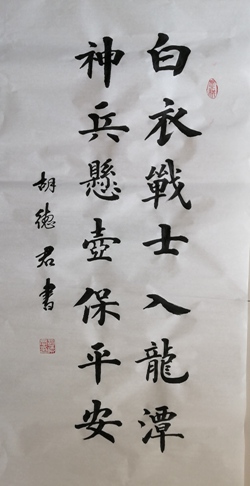 白衣戰士入龍潭
神兵懸壺保平安
胡德君書